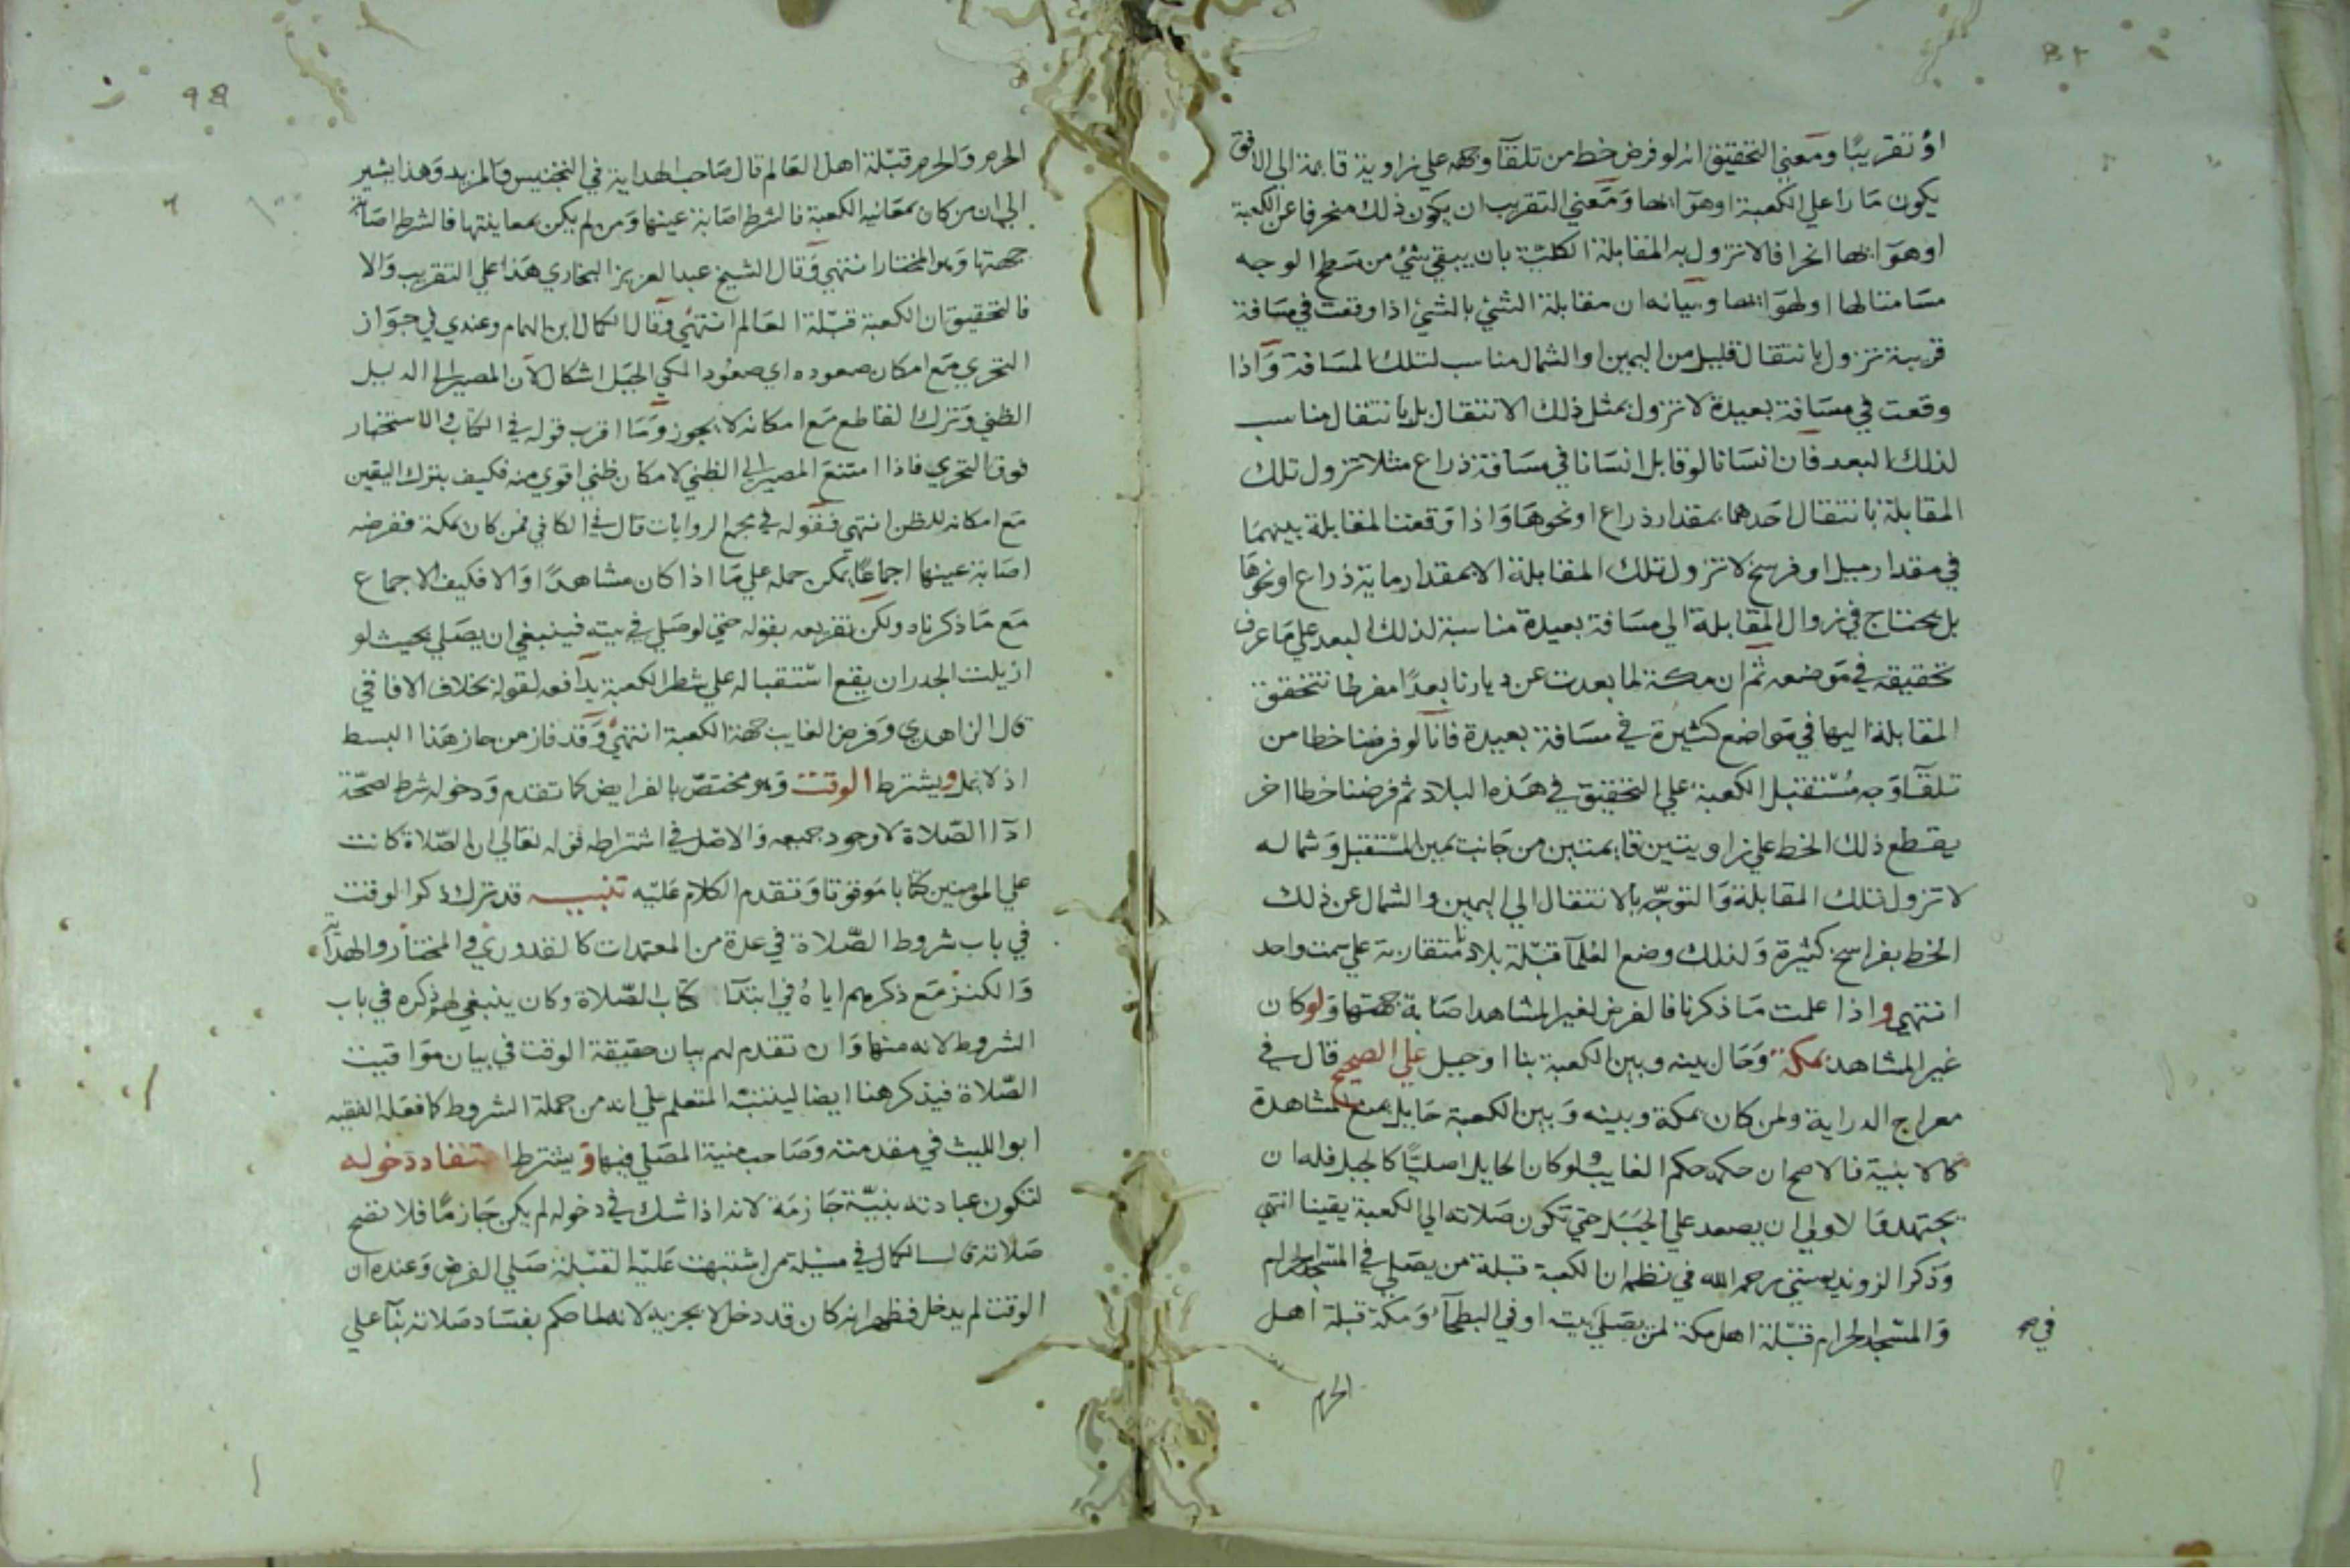 او تقريبًا ومعني التحقيق انه لو فرض خط من تلقآ وجهه علي زاوية قايمة الي الافق
يكون مارا علي الكعبة او هوآئها ومعني التقريب ان يكون ذلك منحرفا عن الكعبة
او هوآئها انحرافا لا تزول به المقابلة الكلية بان يبقي شئ من سطح الوجه
مسامتا لها او لهوائها وبيانه ان مقابلة الشئ بالشئ اذا وقعت في مسافة
قريبة تزول بانتقال قليل من اليمين او الشمال مناسب لتلك المسافة واذا
وقعت في مسافة بعيدة لا تزول بمثل ذلك الانتقال بل بانتقال مناسب
لذلك البعد فان انسانا لو قابل انسانا في مسافة ذراع مثلا تزول تلك
المقابلة بانتقال احدهما بمقدار ذراع او نحوها واذا وقعت المقابلة بينهما
في مقدار ميل او فرسخ لا تزول تلك المقابلة الا بمقدار ماية ذراع او نحوها
بل يحتاج في زوال المقابلة الي مسافة بعيدة مناسبة لذلك البعد علي ما عرف
تحقيقه في موضعه ثم ان مكة لما بعدت عن ديارنا بعدًا مفرطا تتحقق
المقابلة اليها في مواضع كثيرة في مسافة بعيدة فانا لو فرضنا خطا من
تلقآ وجه مستقبل الكعبة علي التحقيق في هذه البلاد ثم فرضنا خطا اخر
يقطع ذلك الخط علي زاويتين قايمتين من جانب يمين المستقبل وشماله
لا تزول تلك المقابلة والتوجه بالانتقال الي اليمين والشمال عن ذلك
الخط بفراسخ كثيرة ولذلك وضع العلمآ قبلة بلاد متقاربة علي سمت واحد
انتهي واذا علمت ما ذكرنا فالفرض لغير المشاهد اصابة جهتها ولو كان
غير المشاهد بمكة وحال بينه وبين الكعبة بنا او جبل علي الصحيح قال في
معراج الدراية ومن كان بمكة وبينه وبين الكعبة حايل يمنع المشاهدة
كالابنية فالاصح ان حكمه حكم الغايب ولو كان الحايل اصليًا كالجبل فله ان
يجتهد والاولي ان يصعد علي الجبل حتي تكون صلاته الي الكعبة يقينا انتهي
وذكر الزندويستي رحمه الله في نظمه ان الكعبة قبلة من يصلي في المسجد الحرام
والمسجد الحرام قبلة اهل مكة لمن يصلي بيته او في البطحآ ومكة قبلة اهل
في صح
الحرم
الحرم والحرم قبلة اهل العالم قال صاحب الهداية في التجنيس والمزيد وهذا يشير
الي ان من كان بمعاينة الكعبة فالشرط اصابة عينها ومن لم يكن بمعاينتها فالشرط اصابة
جهتها وهو المختار انتهي وقال الشيخ عبد العزيز البخاري هذا علي التقريب والا
فالتحقيق ان الكعبة قبلة العالم انتهي وقال الكمال ابن الهمام وعندي في جواز
التحري مع امكان صعوده اي صعود المكي الجبل اشكال لان المصير الي الدليل
الظني وترك القاطع مع امكانه لا يجوز وما اقرب قوله في الكتاب والاستخبار
فوق التحري فاذا امتنع المصير الي الظني لامكان ظني اقوي منه فكيف بترك اليقين
مع امكانه للظن انتهي فقوله في مجمع الروايات قال في الكافي فمن كان بمكة ففرضه
اصابة عينها اجماعًا يمكن حمله علي ما اذا كان مشاهدًا والا فكيف الاجماع
مع ما ذكرناه ولكن تفريعه بقوله حتي لو صلي في بيته فينبغي ان يصلي بحيث لو
ازيلت الجدران يقع استقباله علي شطر الكعبة يدافعه لقوله بخلاف الافاقي
قال الزاهدي وفرض الغايب جهة الكعبة انتهي وقد فاز من حاز هذا البسط
اذ لا يمل ويشترط الوقت وهو مختص بالفرايض كما تقدم ودخوله شرط لصحة
ادآ الصلاة لا وجود جميعه والاصل في اشتراطه قوله تعالي ان الصلاة كانت
علي المومنين كتابا موقوتا وتقدم الكلام عليه تنبيه قد ترك ذكر الوقت
في باب شروط الصلاة في عدة من المعتمدات كالقدوري والمختار والهداية
والكنز مع ذكرهم اياه في ابتدآ كتاب الصلاة وكان ينبغي لهم ذكره في باب
الشروط لانه منها وان تقدم لهم بيان حقيقة الوقت في بيان مواقيت
الصلاة فيذكر هنا ايضا ليتنبه المتعلم علي انه من جملة الشروط كما فعله الفقيه
ابو الليث في مقدمته وصاحب منية المصلي فيها ويشترط اعتقاد دخوله
لتكون عبادته بنية جازمة لانه اذا شك في دخوله لم يكن جازمًا فلا تصح
صلاته قال الكمال في مسيلة من اشتبهت عليه القبلة صلي الفرض وعنده ان
الوقت لم يدخل فظهر انه كان قد دخل لا يجزيه لانه لما حكم بفساد صلاته بنآ علي